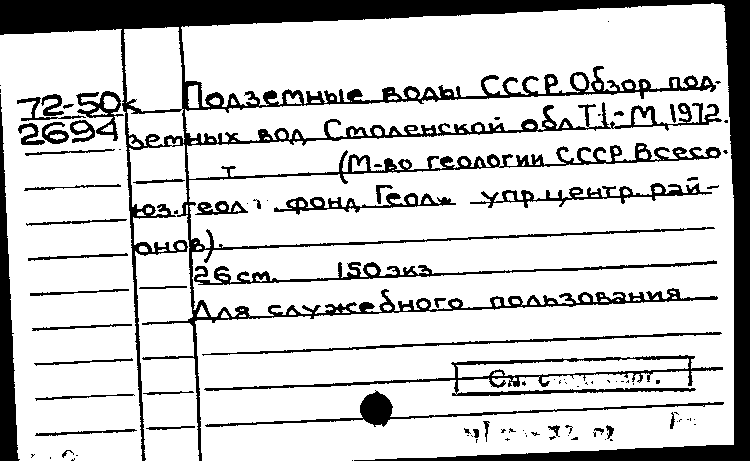 72-50к Подземные воды СССР. Обзор под-
2694 земных вод Смоленской обл. Т.1.- М., 1972.
т (М-во геологии СССР. Всесо-
юз. геол. фонд. Геол. упр. центр. рай-
онов).
26 см. 150 экз.
Для служебного пользования
См.